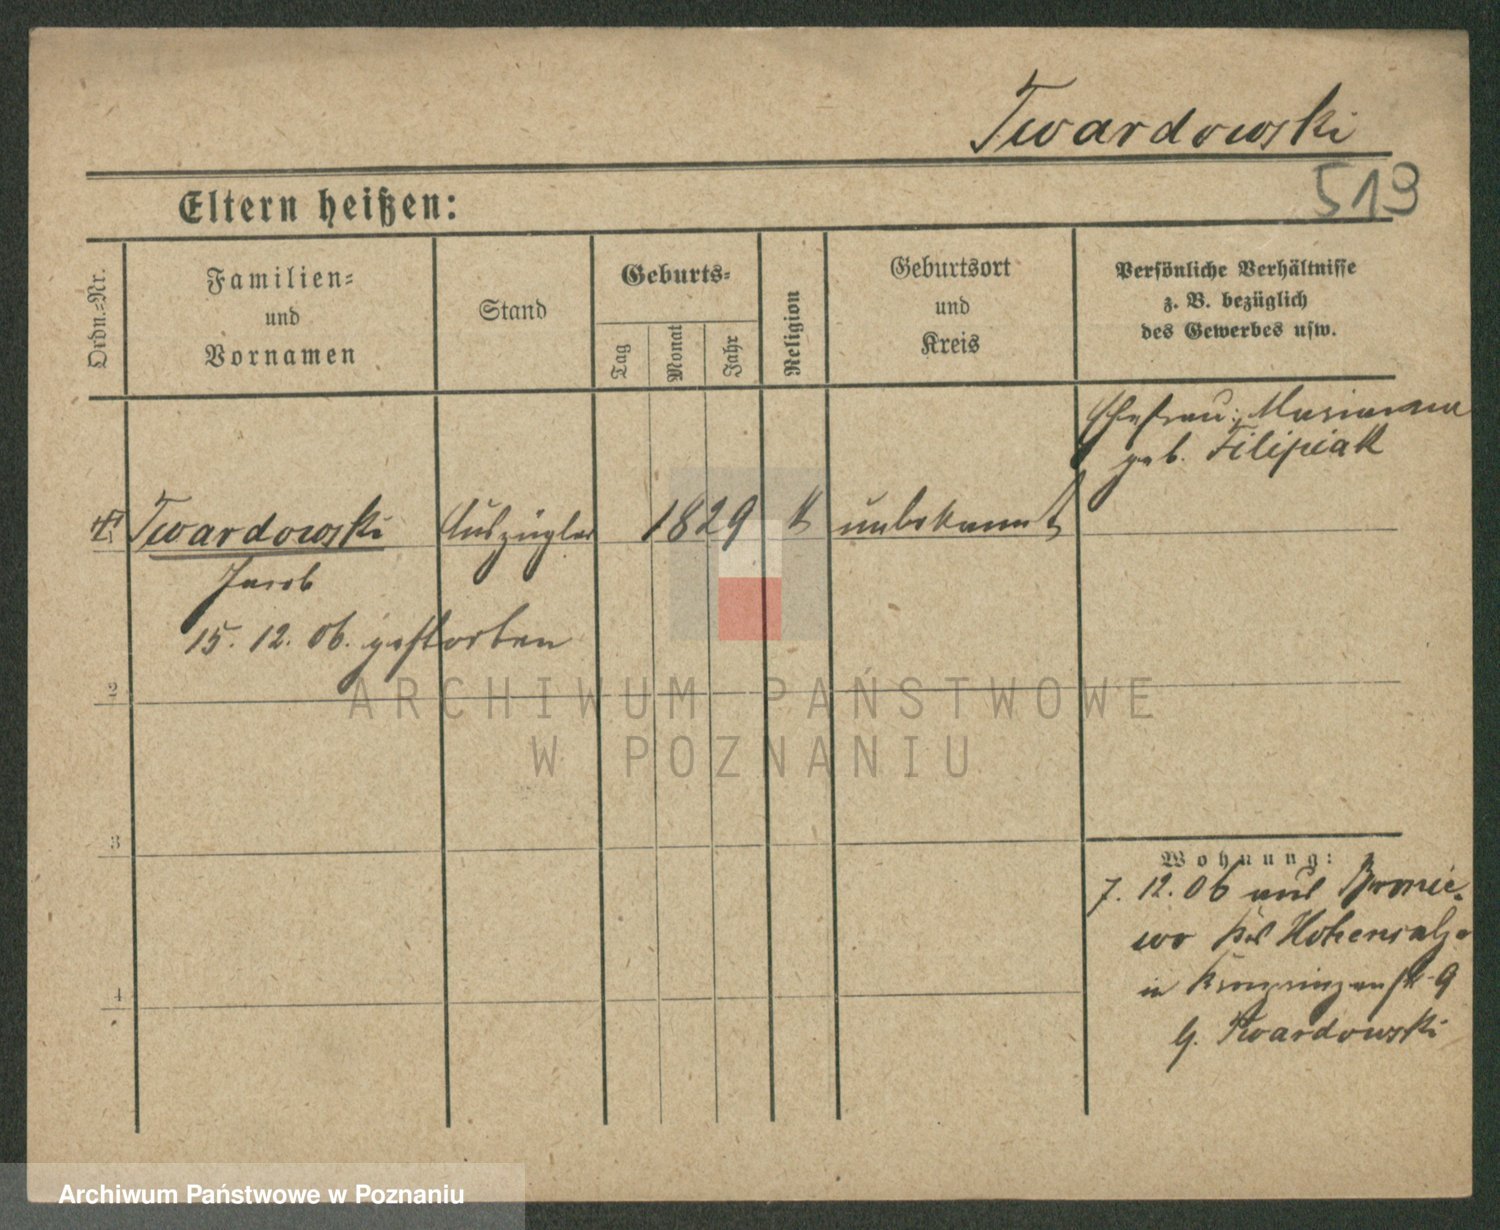 Twardowski
513
Eltern heißen:
Ordn.=Nr.
Familien=
und
Vornamen
Stand
Geburts=
Tag
Monat
Jahr
Religion
Geburtsort
und
Kreis
Persönliche Verhältnisse
z. B. bezüglich
des Gewerbes usw.
Ehefrau: Marianna
geb. Filipiak
Twardowski Auszügler 1829 k unbekannt
Jacob
15. 12. 06. gestorben
2
3
4
Wohnung:
7. 12. 06 aus Bronie-
wo Hohensalza
in 9
Twardowski
ARCHIWUM PAŃSTWOWE
W POZNANIU
Archiwum Państwowe w Poznaniu